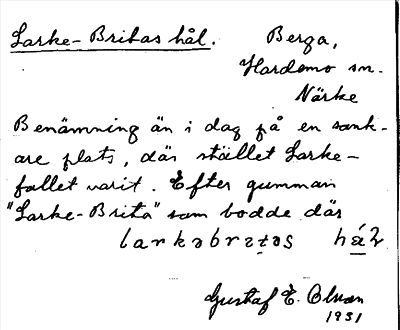 Larke-Britas hål. Berga,
Hardemo sn.
Närke
Benämning än i dag på en sank-
are plats, där stället Larke-
fallet varit. Efter gumman
"Larke-Brita" som bodde där
larkəbrɪtas hå̱l
Gustaf E. Olsson
1931